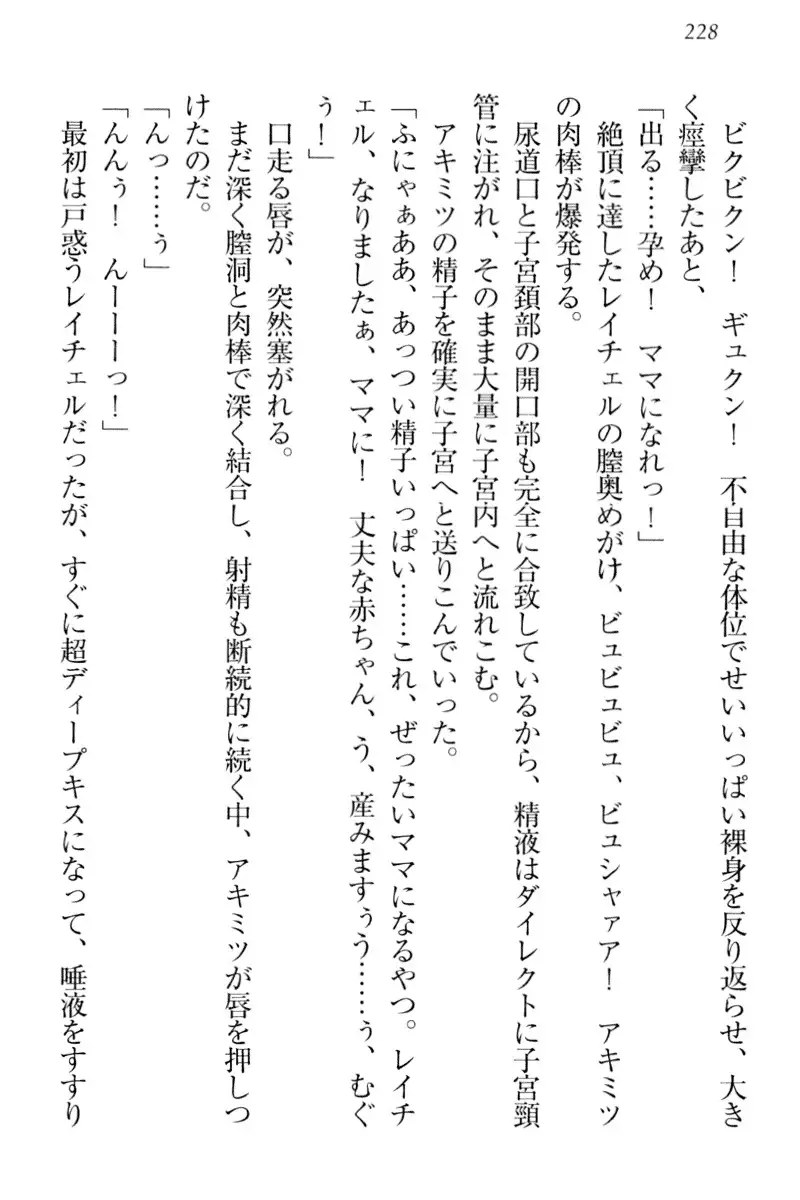 228
ビクビクン！　ギュクン！　不自由な体位でせいいっぱい裸身を反り返らせ、大き
く痙攣したあと、
「出る……孕め！　ママになれっ！」
絶頂に達したレイチェルの膣奥めがけ、ビュビュビュ、ビュシャァア！　アキミツ
の肉棒が爆発する。
尿道口と子宮頚部の開口部も完全に合致しているから、精液はダイレクトに子宮頸
管に注がれ、そのまま大量に子宮内へと流れこむ。
アキミツの精子を確実に子宮へと送りこんでいった。
「ふにゃぁああ、あっつい精子いっぱい……これ、ぜったいママになるやつ。レイチ
ェル、なりましたぁ、ママに！　丈夫な赤ちゃん、う、産みますぅう……ぅ、むぐ
ぅ！」
口走る唇が、突然塞がれる。
まだ深く膣洞と肉棒で深く結合し、射精も断続的に続く中、アキミツが唇を押しつ
けたのだ。
「んっ……ぅ」
「んんぅ！　んーーーっ！」
最初は戸惑うレイチェルだったが、すぐに超ディープキスになって、唾液をすすり